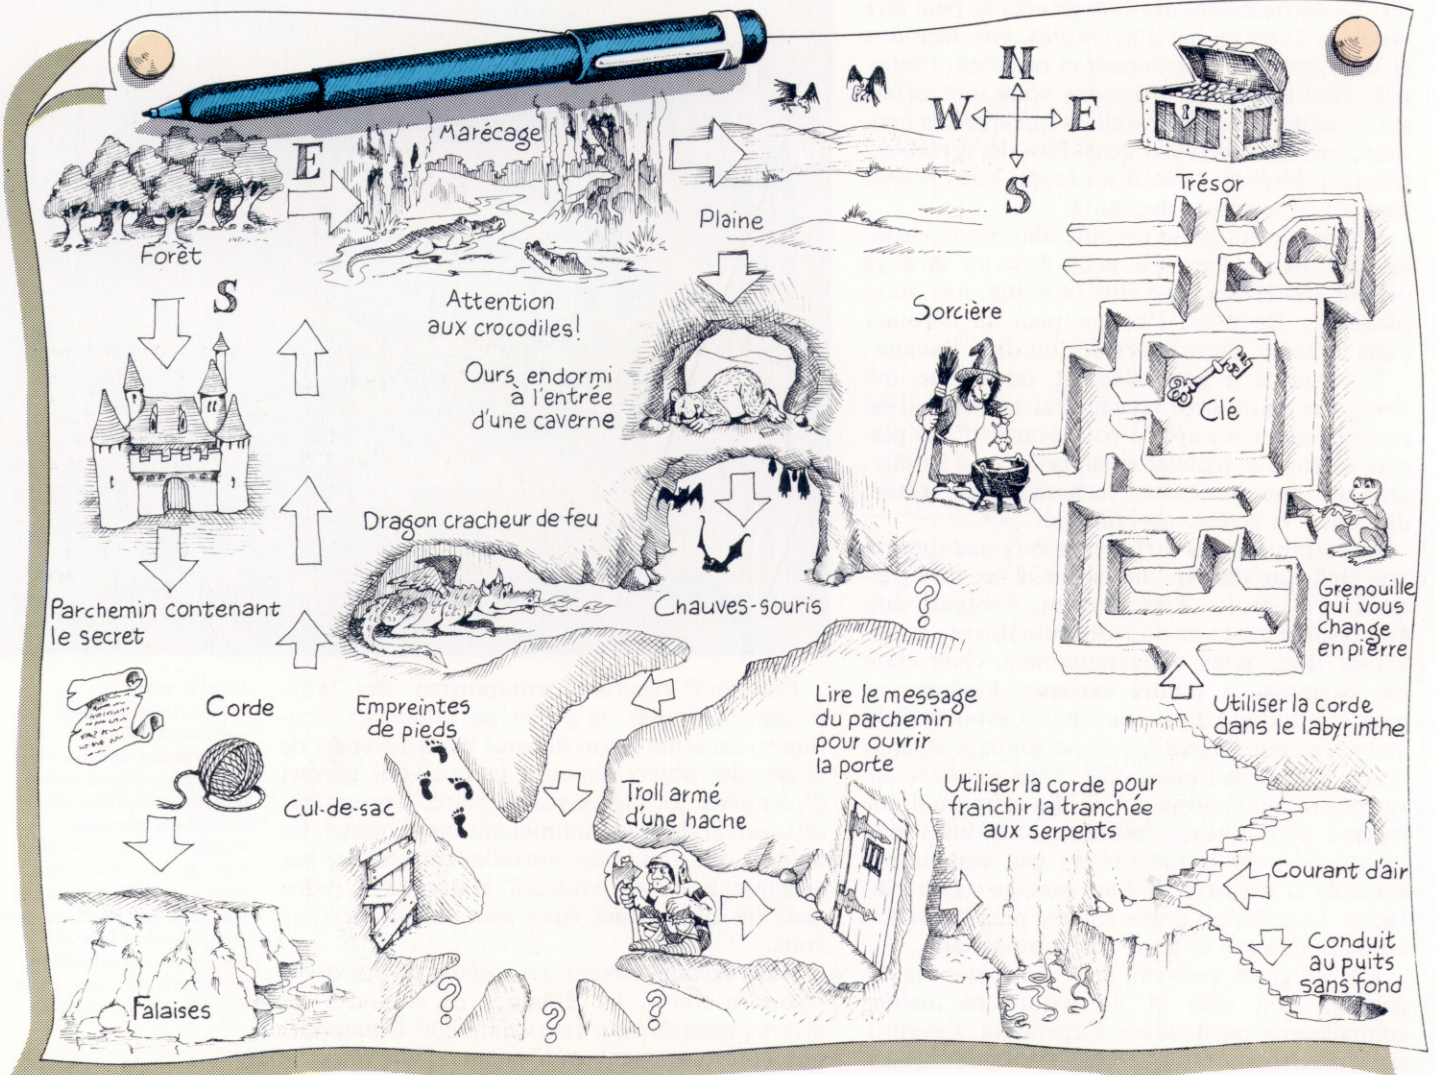 N
W E
S
E
Marécage
Trésor
Plaine
Forêt
S
Attention
aux crocodiles!
Sorcière
Ours endormi
à l'entrée
d'une caverne
Clé
Dragon cracheur de feu
Parchemin contenant
le secret
Chauves-souris
?
Grenouille
qui vous
change
en pierre
Corde
Empreintes
de pieds
Lire le message
du parchemin
pour ouvrir
la porte
Utiliser la corde
dans le labyrinthe
Cul-de-sac
Troll armé
d'une hache
Utiliser la corde pour
franchir la tranchée
aux serpents
Courant d'air
Conduit
au puits
sans fond
Falaises
?
?
?